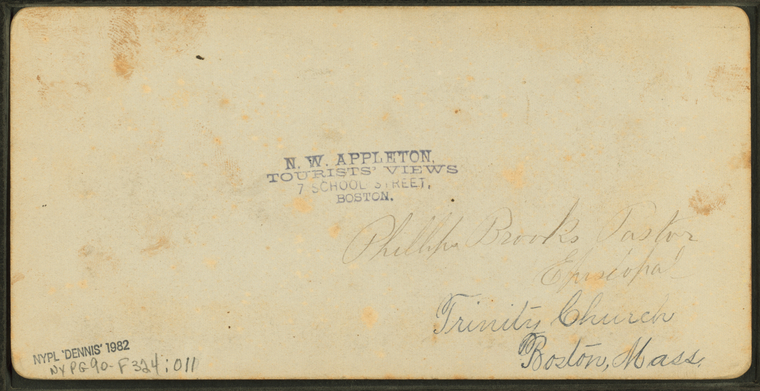 N. W. APPLETON,
TOURISTS' VIEWS
7 SCHOOL STREET,
BOSTON.
Phillips Brooks Pastor
Episcopal
Trinity Church
Boston, Mass.
NYPL 'DENNIS' 1982
NYPG90-F324:011